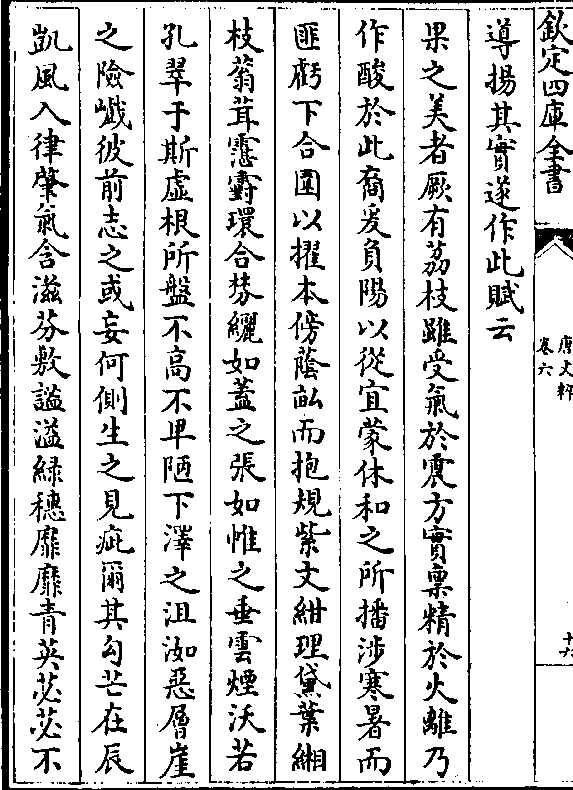 欽定四庫全書
唐文粹
卷六
十六
導揚其實遂作此賦云
果之美者厥有荔枝雖受氣於震方實稟精於火離乃
作酸於此裔爰負陽以從宜蒙休和之所播涉寒暑而
匪虧下合圍以擢本傍蔭畝而抱規紫文紺理黛葉緗
枝蓊茸霮䨴環合棼纚如蓋之張如帷之垂雲煙沃若
孔翠于斯靈根所盤不高不卑陋下澤之沮洳惡層崖
之險巇彼前志之或妄何側生之見疵爾其勾芒在辰
凱風入律肇氣含滋芬敷謐溢綠穗靡靡青英苾苾不